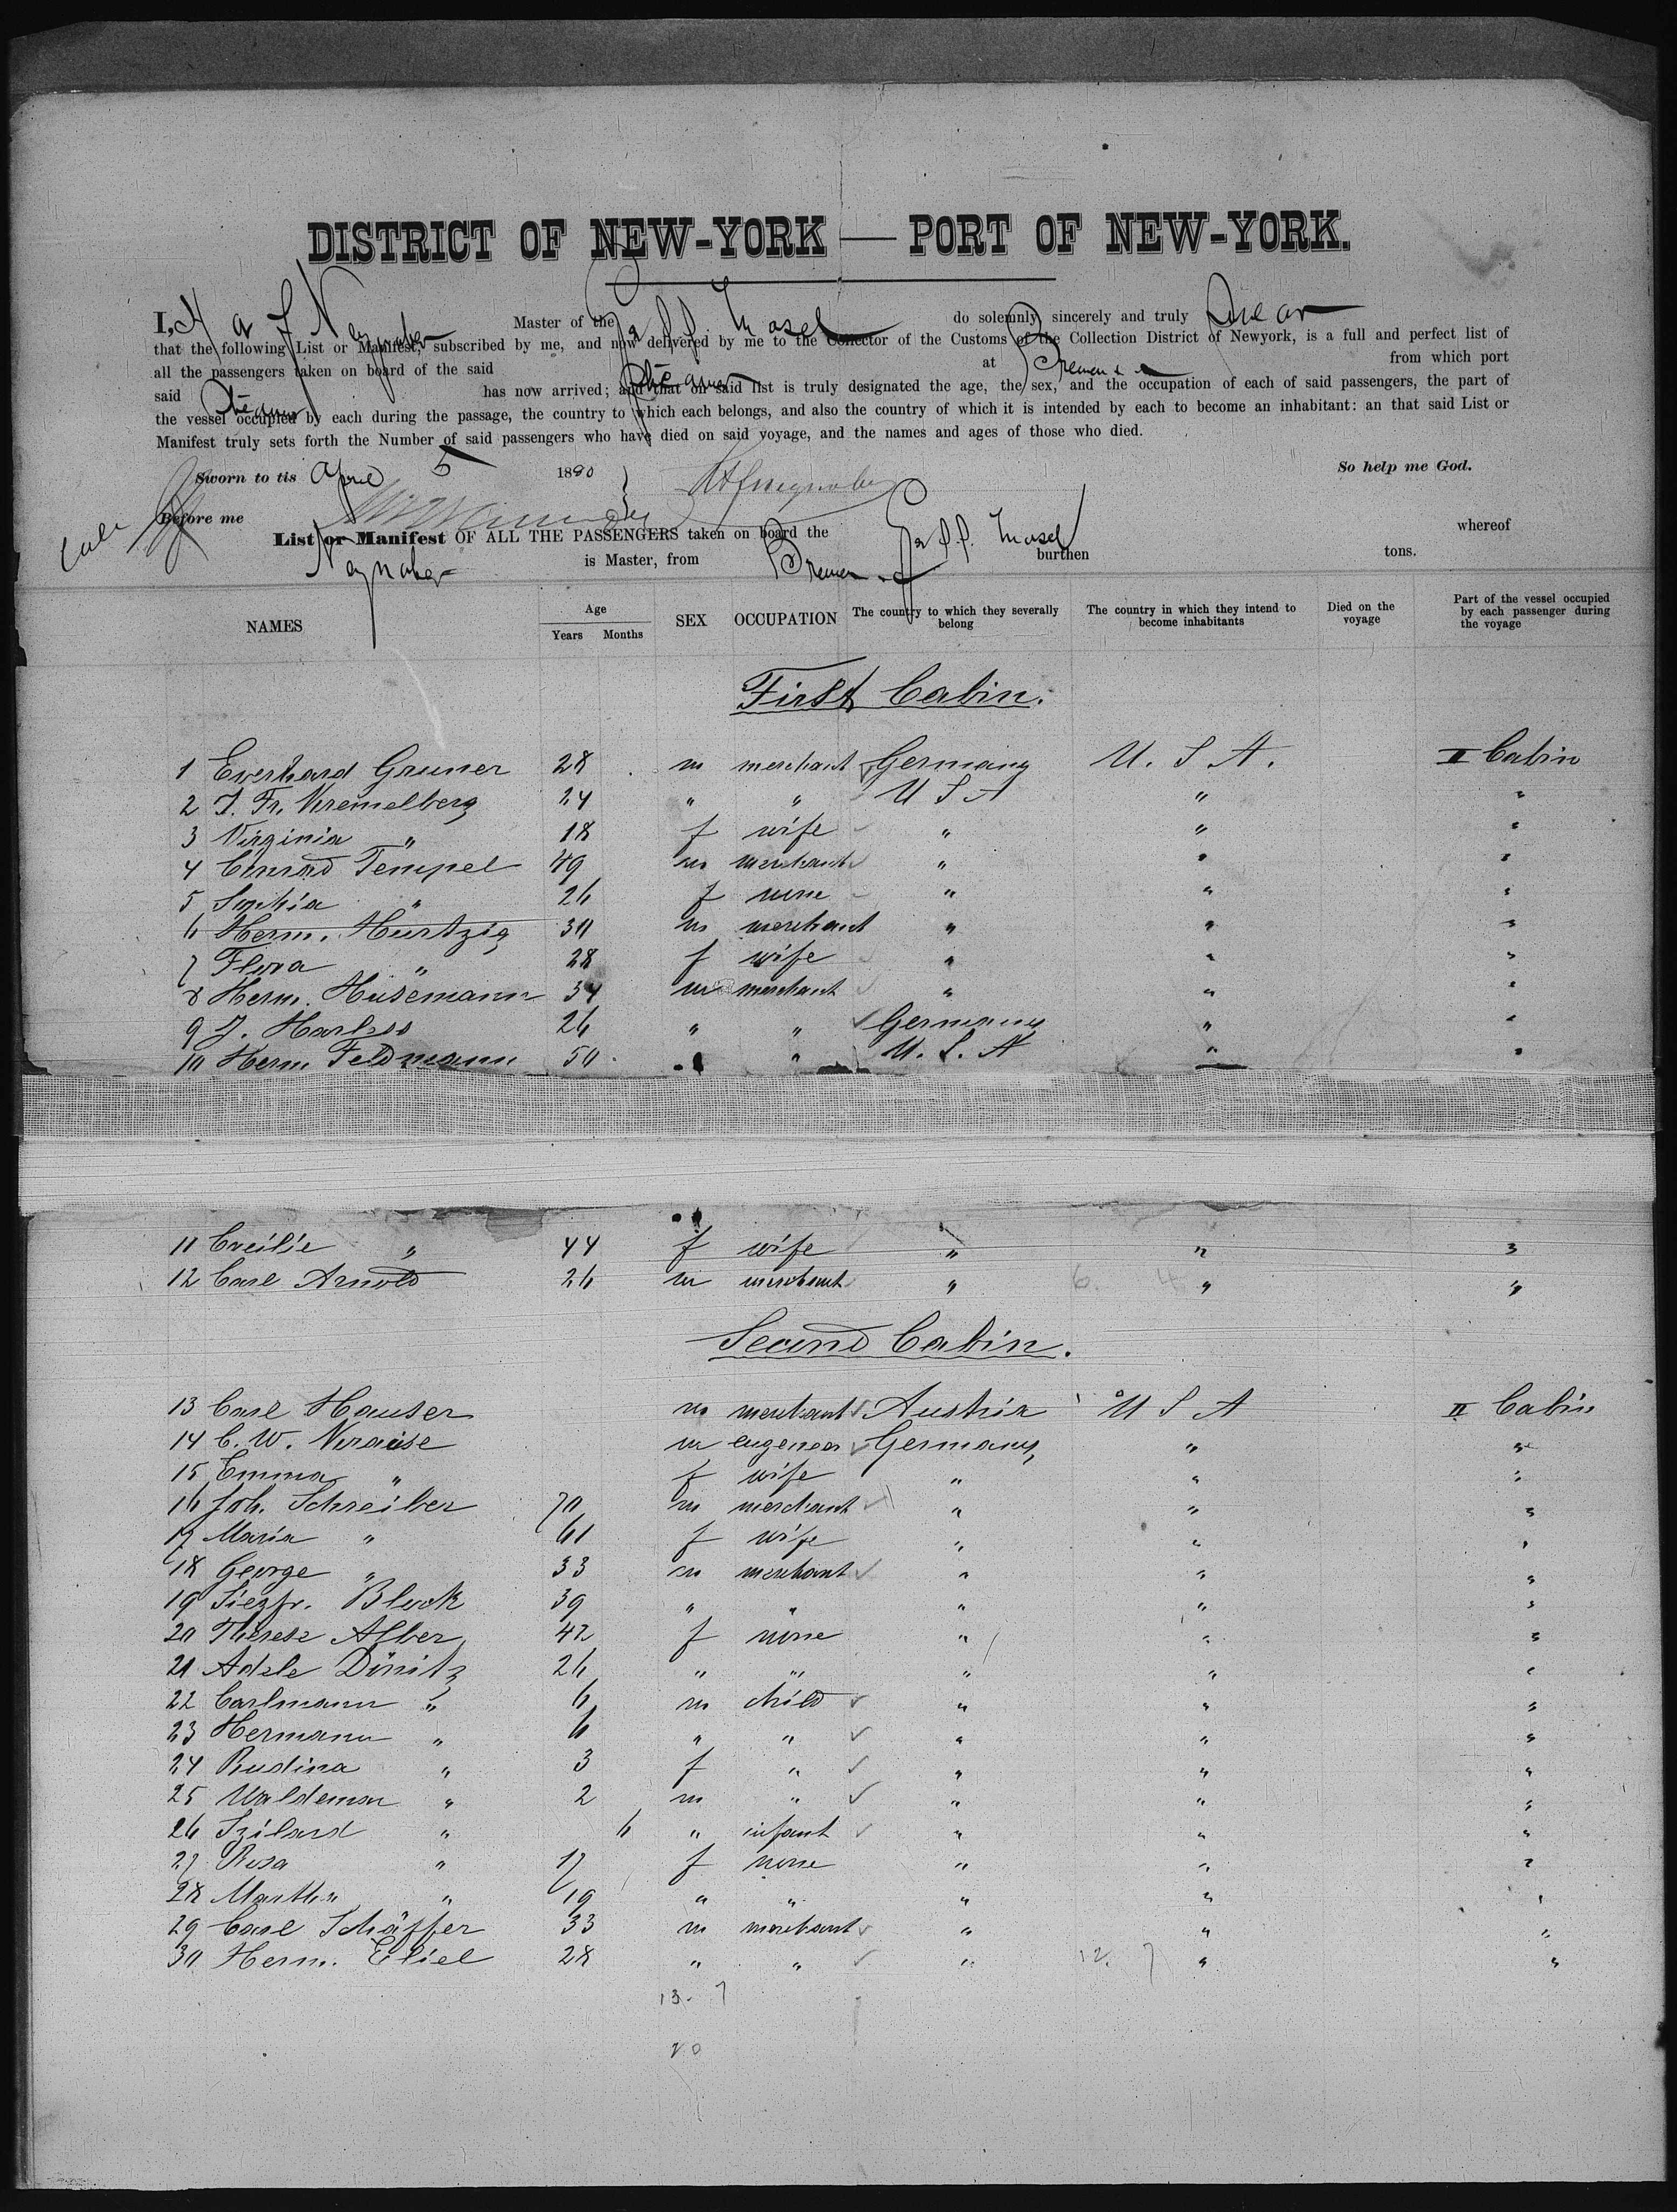 DISTRICT OF NEW-YORK — PORT OF NEW-YORK.
I, H a F Neynaber Master of the Ger S. S. Mosel do solemnly sincerely and truly Swear
that the following List or Manifest, subscribed by me, and now delivered by me to the Collector of the Customs of the Collection District of Newyork, is a full and perfect list of
all the passengers taken on board of the said Steamer at Bremen from which port
said Steamer has now arrived; and that on said list is truly designated the age, the sex, and the occupation of each of said passengers, the part of
the vessel occupied by each during the passage, the country to which each belongs, and also the country of which it is intended by each to become an inhabitant: an that said List or
Manifest truly sets forth the Number of said passengers who have died on said voyage, and the names and ages of those who died.
Sworn to tis April 5 1880 So help me God.
Before me
List or Manifest OF ALL THE PASSENGERS taken on board the Ger S. S. Mosel whereof
Neynaber is Master, from Bremen burthen tons.
NAMES Age Years Months SEX OCCUPATION The country to which they severally belong The country in which they intend to become inhabitants Died on the voyage Part of the vessel occupied by each passenger during the voyage
First Cabin.
1 Everhard Gruner 28 m merchant Germany U. S A. II Cabin
2 J. Fr. Kremelberg 24 " " U S A " "
3 Virginia " 18 f wife " " "
4 Conrad Tempel 49 m merchant " " "
5 Sophia " 26 f none " " "
6 Herm. Hurtzig 30 m merchant " " "
7 Flora " 28 f wife " " "
8 Herm. Husemann 34 m merchant " " "
9 J. Harless 26 " " Germany " "
10 Herm. Feldmann 50 " " U. S. A " "
11 Cecilie " 44 f wife " " "
12 Carl Arnold 26 m merchant " 6. 4 " "
Second Cabin.
13 Carl Hauser m merchant Austria U S A II Cabin
14 C. W. Krause m engeneer Germany " "
15 Emma " f wife " " "
16 Joh. Schreiber 70 m merchant " " "
17 Maria " 61 f wife " " "
18 George " 33 m merchant " " "
19 Siegfr. Block 39 " " " " "
20 Therese Alber 42 f none " " "
21 Adele Dinitz 26 " " " " "
22 Carlmann " 6 m child " " "
23 Hermann " 6 " " " " "
24 Rudina " 3 f " " " "
25 Waldemar " 2 m " " " "
26 Szilard " 6 " infant " " "
27 Rosa " 17 f none " " "
28 Martha " 19 " " " " "
29 Carl Schäffer 33 m merchant " " "
30 Herm. Eliel 28 " " " 12. 7 " "
13. 7
20